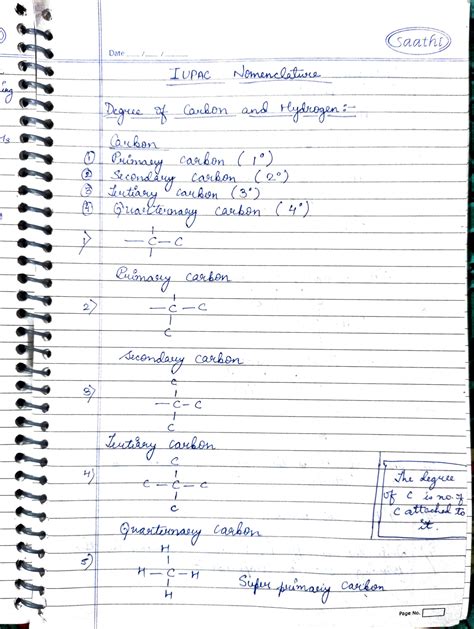 Saathi
Date ___/___/___
IUPAC Nomenclature
Degree of Carbon and Hydrogen :-
Carbon
① Primary carbon (1°)
② Secondary carbon (2°)
③ Tertiary carbon (3°)
④ Quarternary carbon (4°)
1) — C — C
Primary carbon
2) — C — C
C
Secondary carbon
C
3) — C — C
C
Tertiary carbon
C
4) C — C — C
C
Quarternary carbon
The degree
of C is no. of
C attached to
it.
H
5) H — C — H
H
Super primary carbon
Page No.